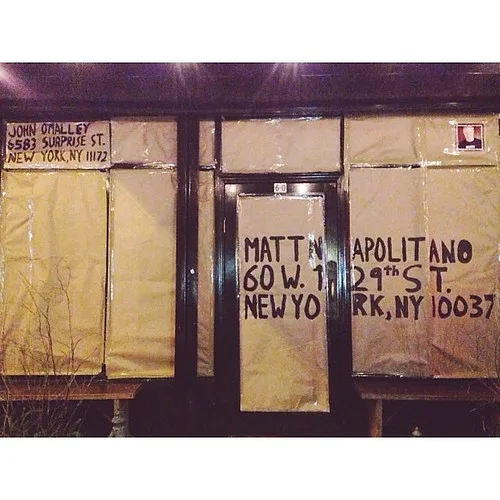 JOHN OMALLEY
6583 SURPRISE ST.
NEW YORK, NY 11172
60
MATT NAPOLITANO
60 W. 129th ST.
NEW YORK, NY 10037